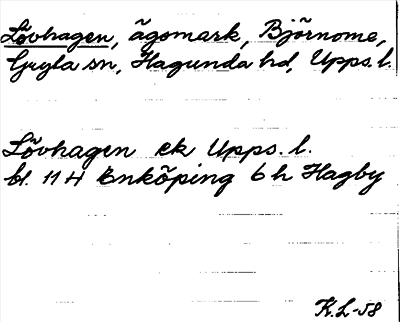 Lövhagen, ägomark, Björnome,
Gryta sn, Hagunda hd, Upps. l.
Lövhagen ek Upps. l.
bl. 11 H Enköping 6 h Hagby
K.L-58